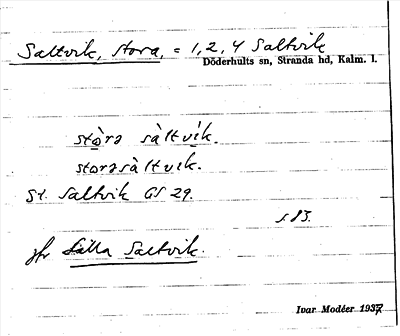 Saltvik, stora, = 1, 2, 4 Saltvik
Döderhults sn, Stranda hd, Kalm. l.
stòrə sàltvík.
storəsàltvik.
St. Saltvik GS 29.
s 83.
jfr Lilla Saltvik.
Ivar Modéer 1937